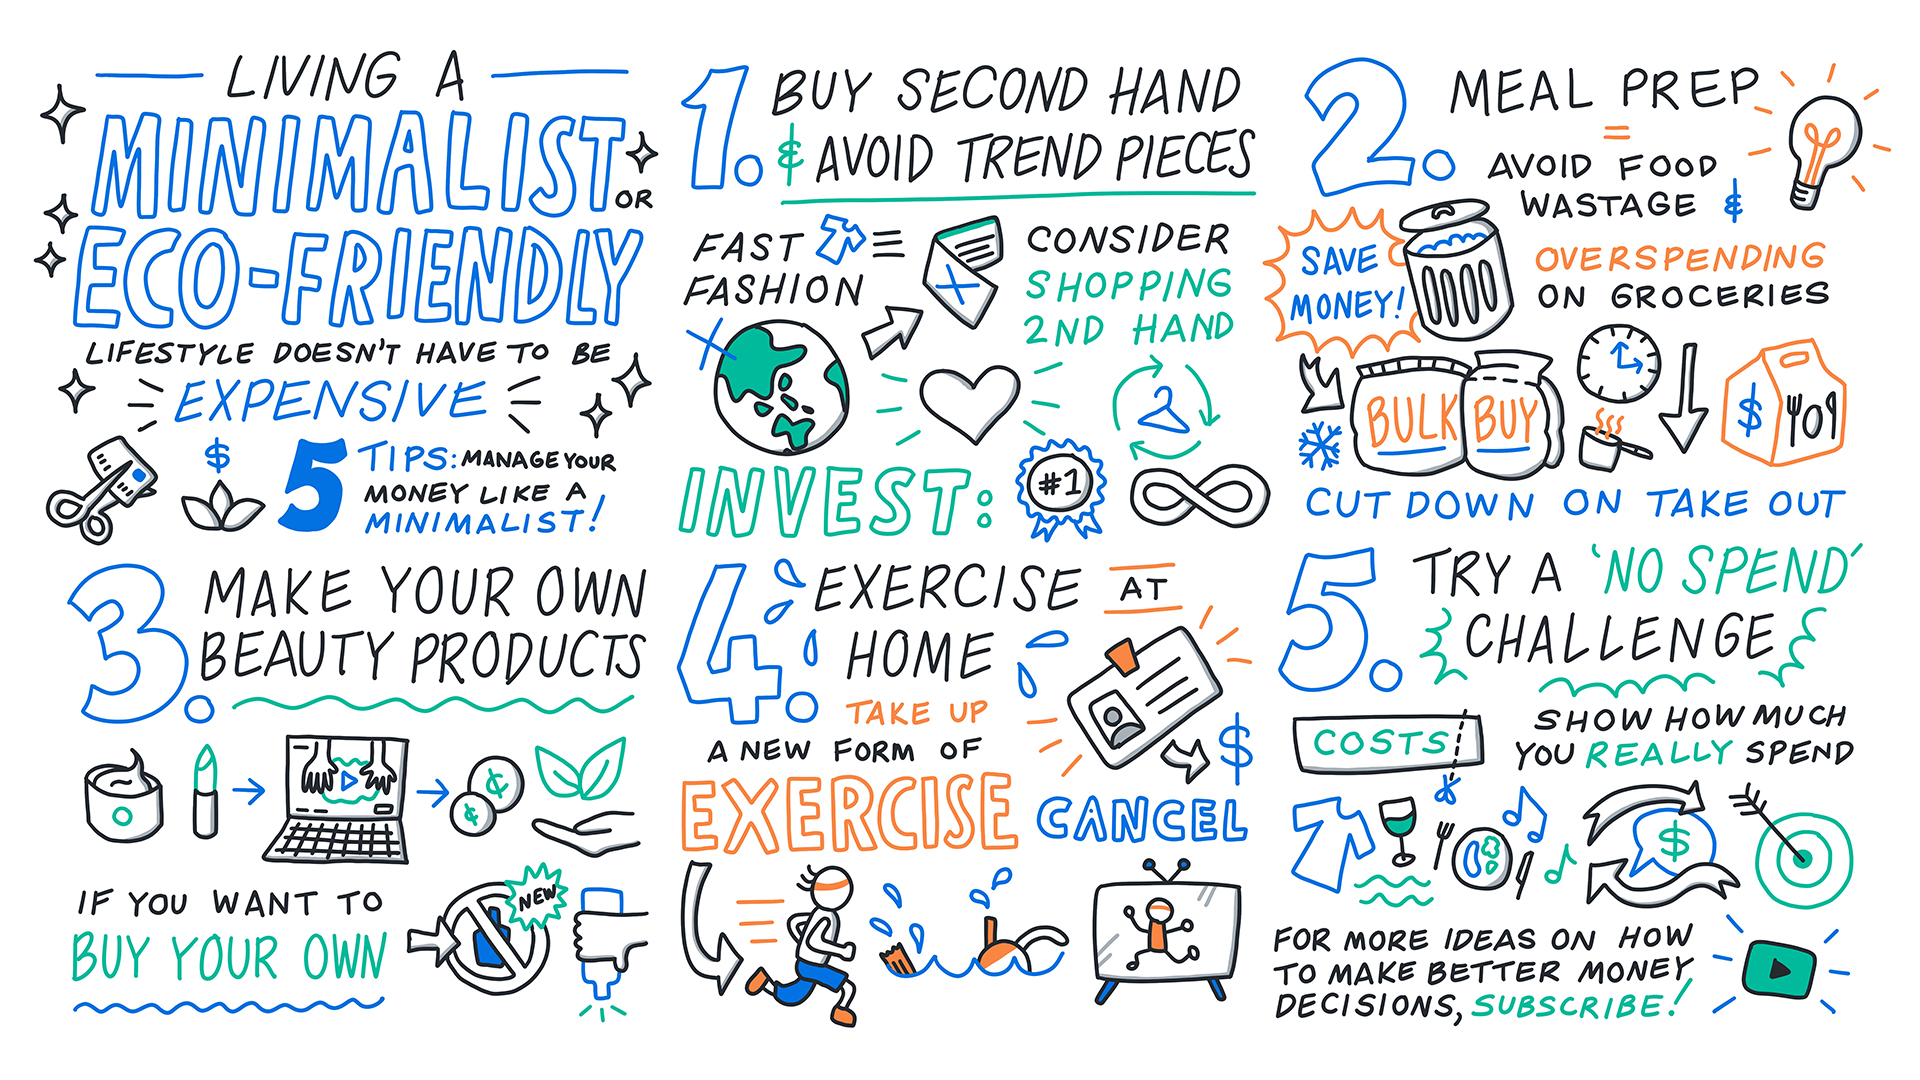 LIVING A
MINIMALIST OR
ECO-FRIENDLY
LIFESTYLE DOESN'T HAVE TO BE
EXPENSIVE
$
5 TIPS: MANAGE YOUR
MONEY LIKE A
MINIMALIST!
1. BUY SECOND HAND
& AVOID TREND PIECES
FAST
FASHION
CONSIDER
SHOPPING
2ND HAND
INVEST:
#1
2. MEAL PREP
=
AVOID FOOD
WASTAGE &
OVERSPENDING
ON GROCERIES
SAVE
MONEY!
BULK BUY
$
CUT DOWN ON TAKE OUT
3. MAKE YOUR OWN
BEAUTY PRODUCTS
¢
¢
IF YOU WANT TO
BUY YOUR OWN
NEW
4. EXERCISE AT
HOME
TAKE UP
A NEW FORM OF
EXERCISE
$
CANCEL
5. TRY A 'NO SPEND'
CHALLENGE
SHOW HOW MUCH
YOU REALLY SPEND
COSTS
$
FOR MORE IDEAS ON HOW
TO MAKE BETTER MONEY
DECISIONS, SUBSCRIBE!